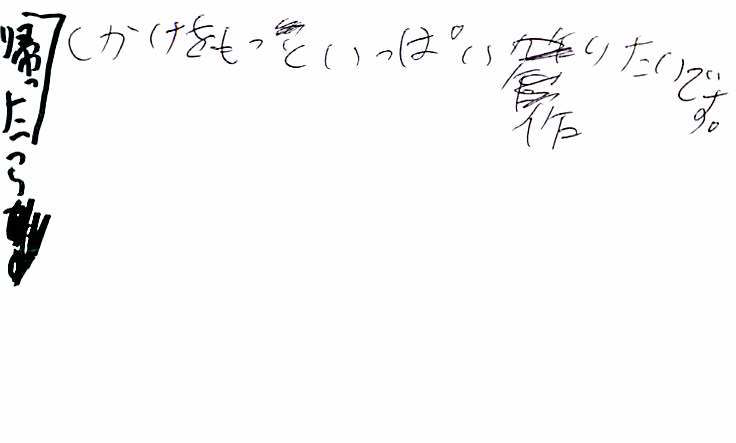 帰ったら
しかけをもっといっぱい作りたいです。